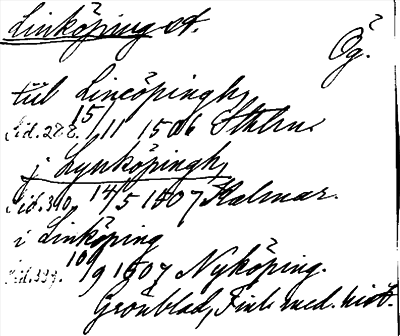 Linköping st.
Ög.
till Lincöpingh
Sid. 288. 15/11 1506 Sthlm.
j Lynköpingh
Sid. 340. 14/5 1507 Kalmar.
i Linköping
Sid. 339. 10/9 1507 Nyköping.
Grönblad, Finl. med. hist.